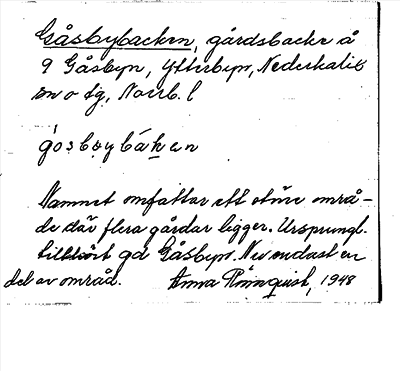 Gåsbybacken, gårdsbacke å
9 Gåsbyn, Ytterbyn, Nederkalix
sn o tg, Norrb. l
gåsbybáken
Namnet omfattar ett större områ-
de där flera gårdar ligger. Ursprungl.
tillhört gd Gåsbyn. Nu endast en
del av områd. Anna Rönnquist, 1948